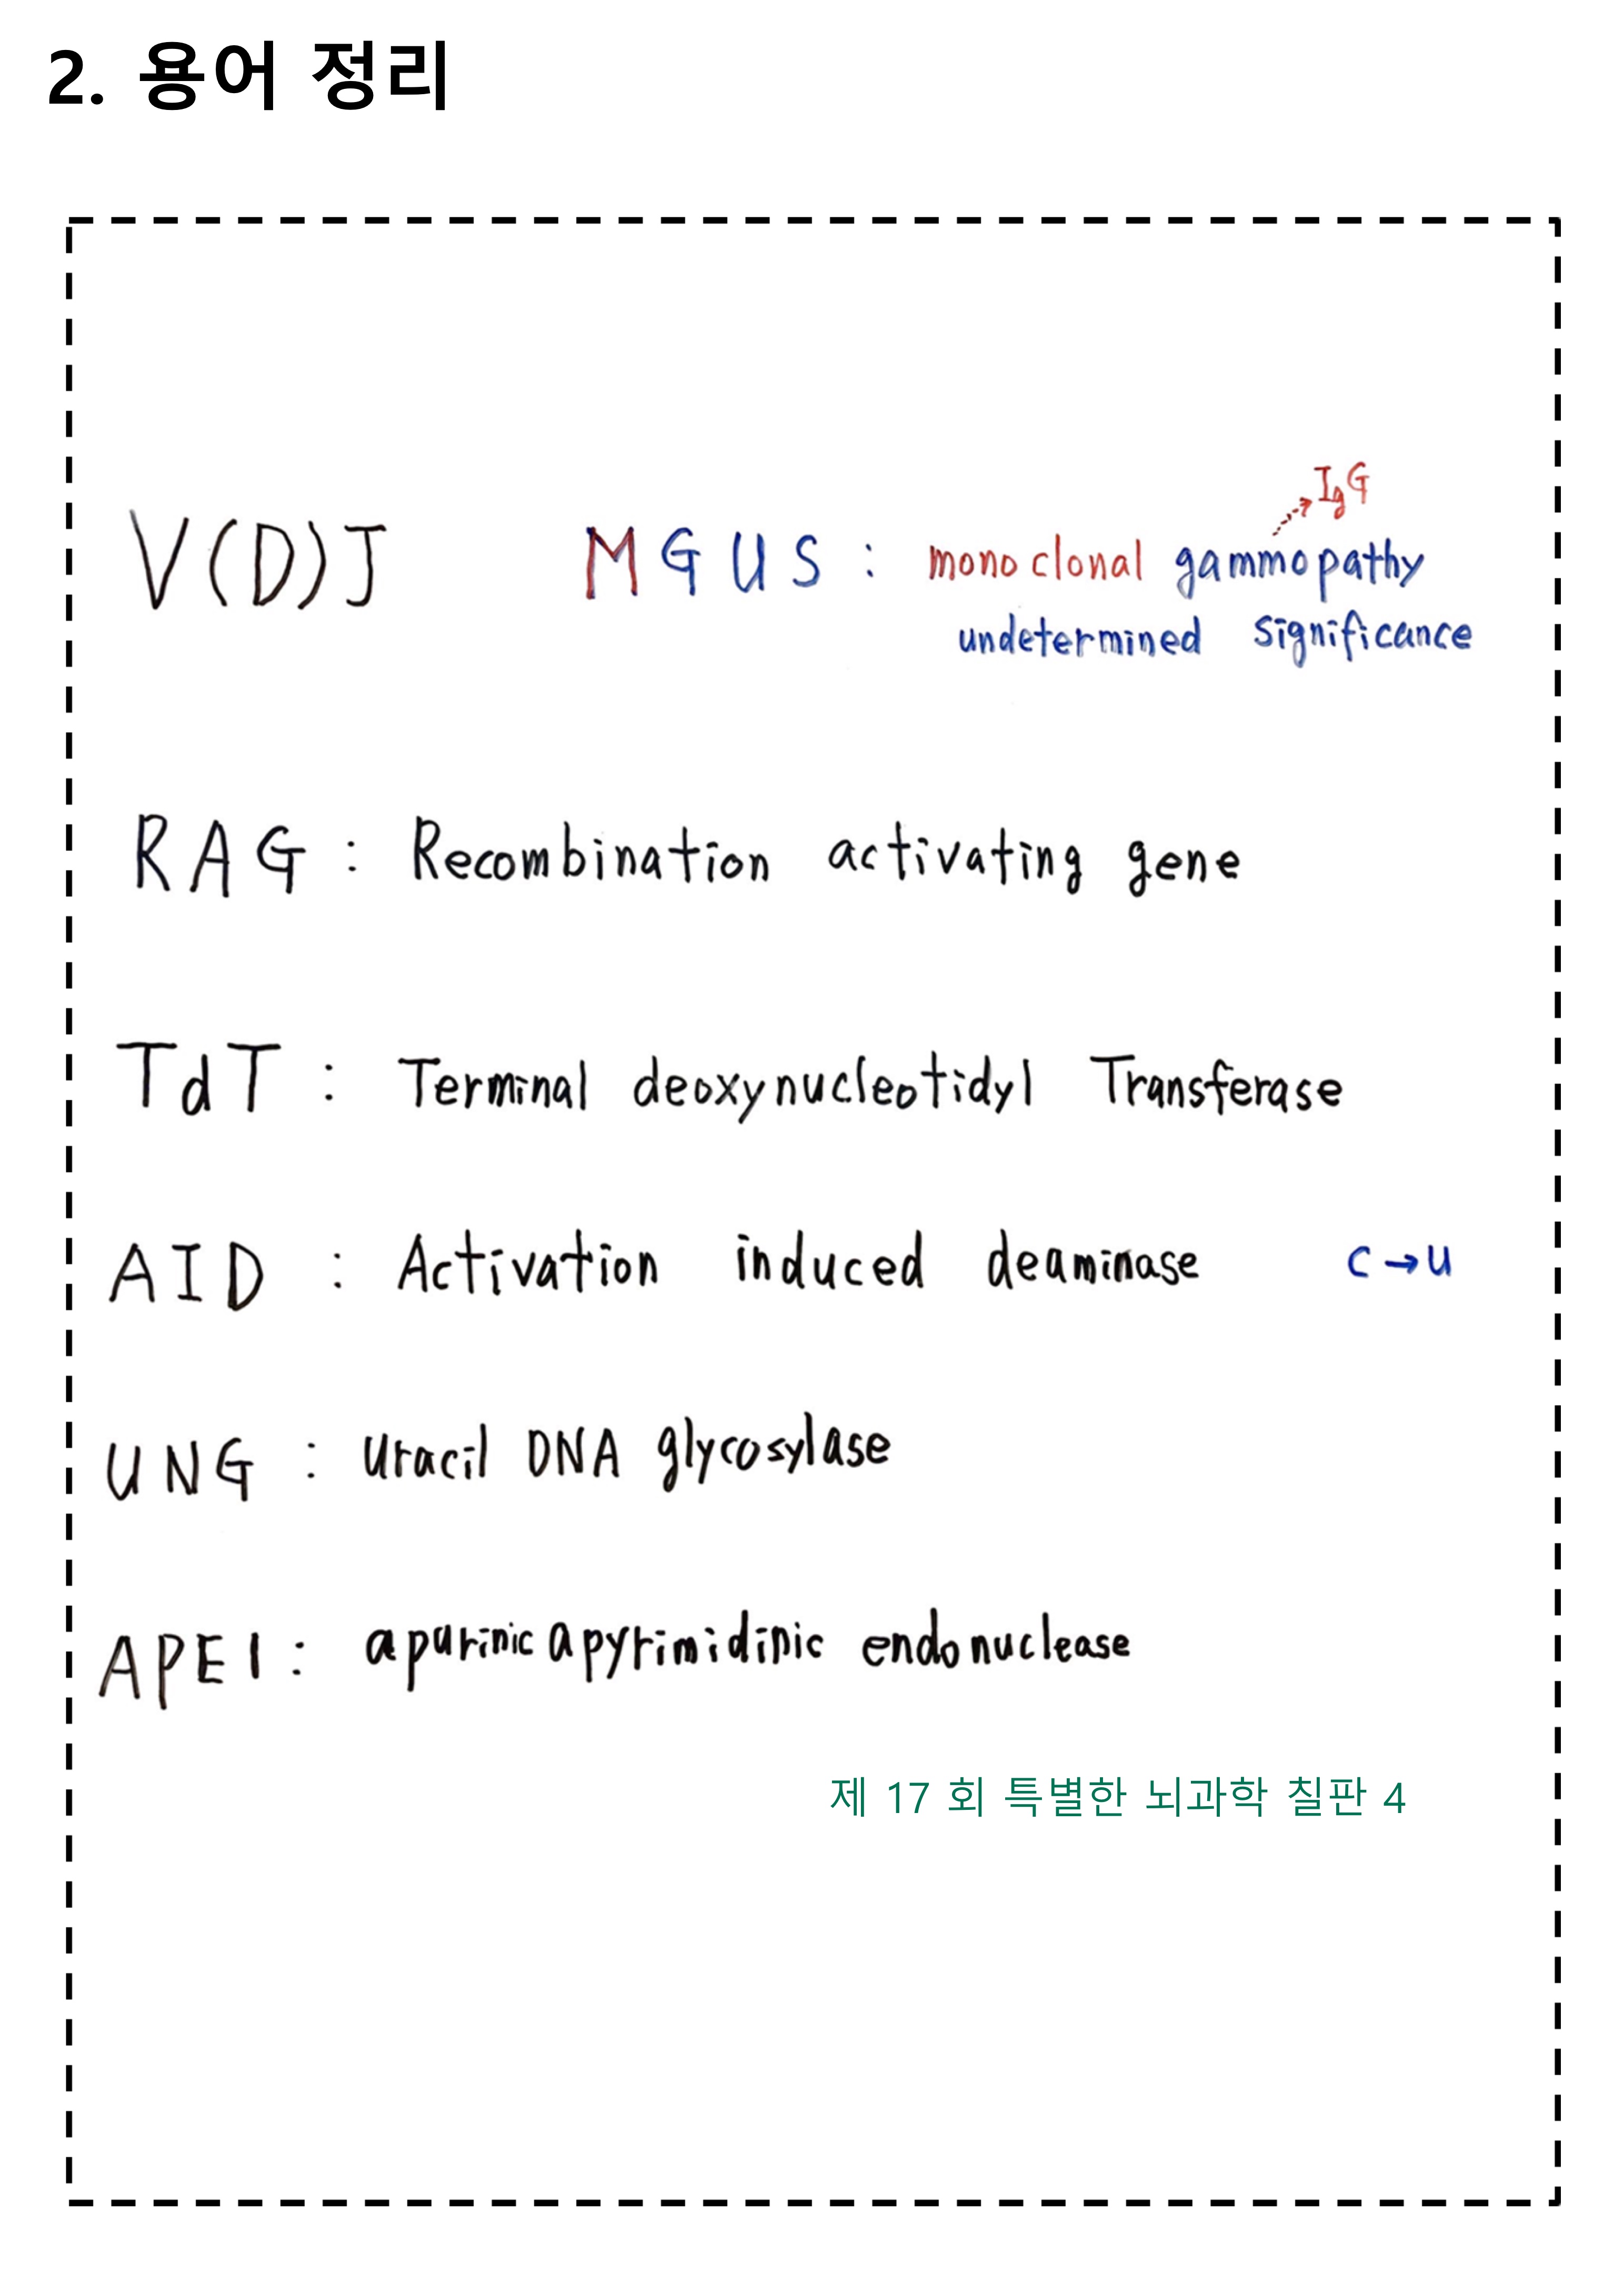 2. 용어 정리
IgG
V(D)J MGUS : monoclonal gammopathy
undetermined significance
RAG : Recombination activating gene
TdT : Terminal deoxynucleotidyl Transferase
AID : Activation induced deaminase C→U
UNG : uracil DNA glycosylase
APE1 : apurinic apyrimidinic endonuclease
제 17 회 특별한 뇌과학 칠판 4